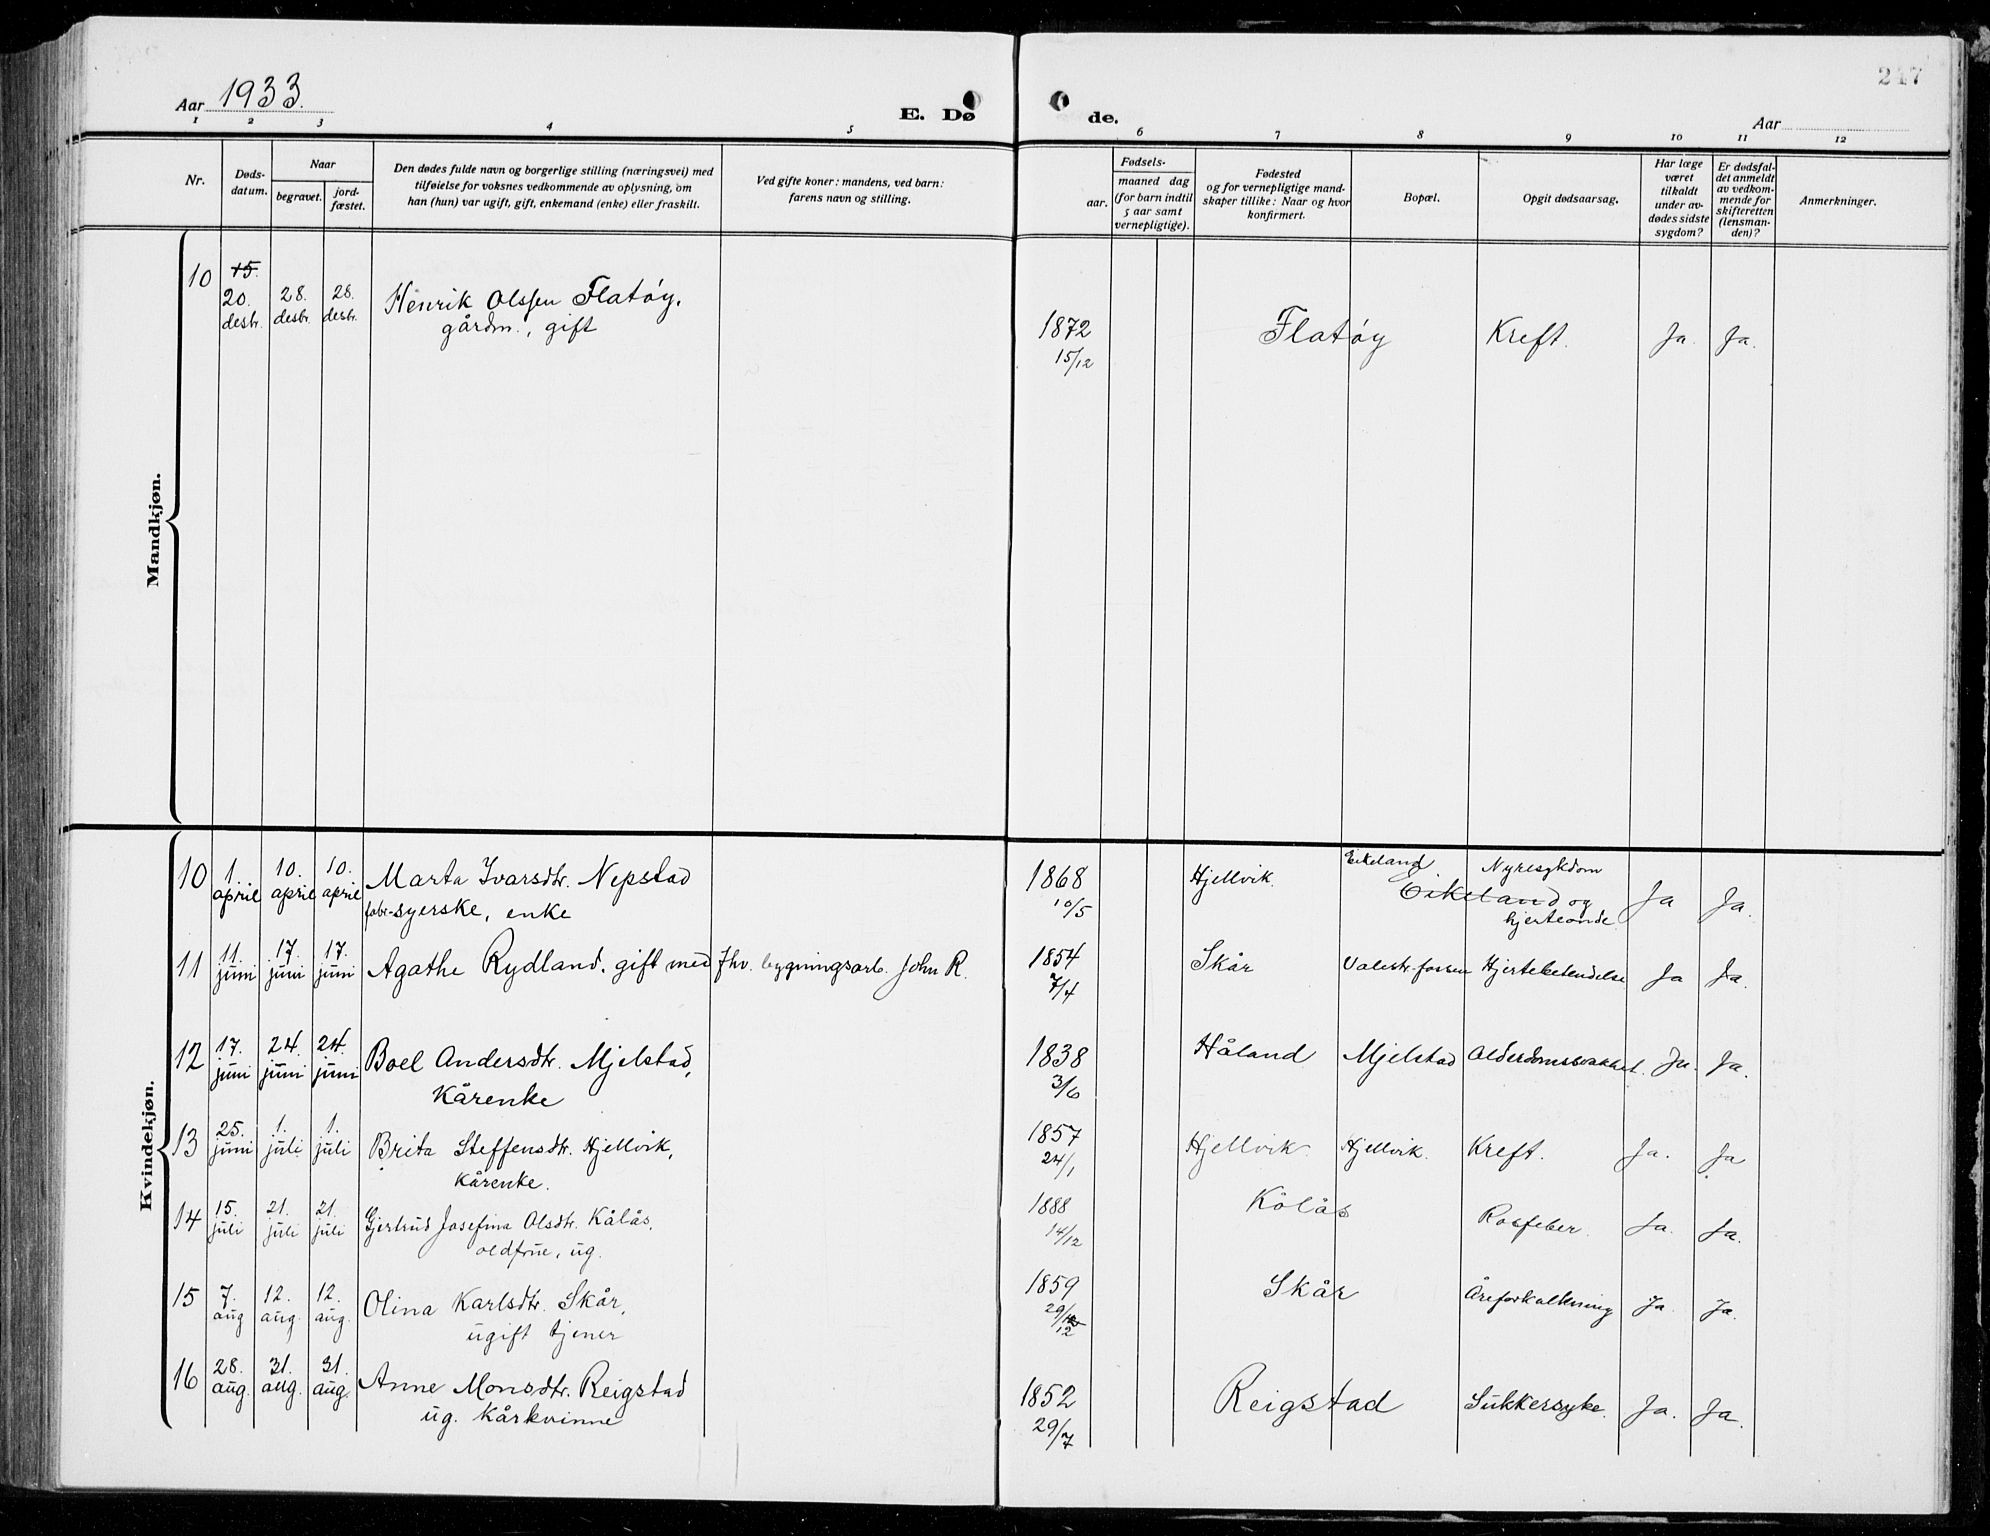 Aar 1933.
E. Døde.
247
Aar
1 2 3 4 5 6 7 8 9 10 11 12
Nr.
Døds-
datum.
Naar
begravet.
jord-
fæstet.
Den dødes fulde navn og borgerlige stilling (næringsvei) med
tilføielse for voksnes vedkommende av oplysning, om
han (hun) var ugift, gift, enkemand (enke) eller fraskilt.
Ved gifte koner: mandens, ved barn:
farens navn og stilling.
Fødsels-
aar.
maaned dag
(for barn indtil
5 aar samt
vernepligtige).
Fødested
og for vernepligtige mand-
skaper tillike: Naar og hvor
konfirmert.
Bopæl.
Opgit dødsaarsag.
Har læge
været
tilkaldt
under av-
dødes sidste
sygdom?
Er dødsfal-
det anmeldt
av vedkom-
mende for
skifteretten
(lensman-
den)?
Anmerkninger.
Mandkjøn.
10 15. 20. desbr. 28. desbr. 28. desbr. Henrik Olssen Flatøy,
gårdm., gift
1872 15/12 Flatøy Kreft. Ja. Ja.
Kvindekjøn.
10 1. april 10. april 10. april Marta Ivarsdtr. Nepstad
fabr-syerske, enke
1868 10/5 Hjellvik. Eikeland Eikeland Nyresykdom og hjerteonde. Ja Ja.
11 11. juni 17. juni 17. juni Agathe Rydland. gift med fhv. bygningsarb. John R.
1854 7/4 Skår Valestr.fossen Hjertebetendelse Ja Ja.
12 17. juni 24. juni 24. juni Boel Andersdtr. Mjelstad,
Kårenke
1838 3/6 Håland Mjelstad Alderdomssvakhet. Ja. Ja.
13 25. juni 1. juli 1. juli Brita Steffensdtr. Hjellvik,
Kårenke.
1857 24/1 Hjellvik Hjellvik. Kreft. Ja. Ja
14 15. juli 21. juli 21. juli Gjertrud Josefina Olsdtr. Kålås,
oldfrue, ug.
1888 14/12 Kålås Rosfeber. Ja. Ja.
15 7. aug 12. aug. 12. aug. Olina Karlsdtr. Skår,
ugift tjener
1859 29/12 Skår Åreforkalkning Ja. Ja.
16 28. aug. 31. aug. 31. aug. Anne Monsdtr. Reigstad
ug. Kårkvinne
1852 29/7 Reigstad Sukkersyke. Ja. Ja.